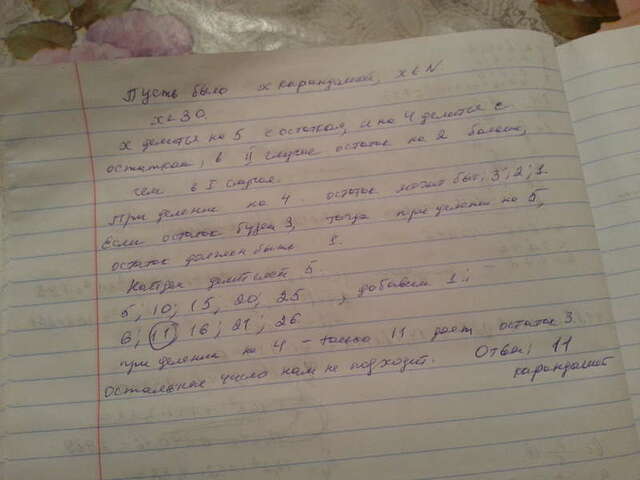 Пусть было x карандашей, x ∈ N.
x < 30.
x делится на 5 с остатком, и на 4 делится с
остатком, в II случае остаток на 2 больше,
чем в I случае.
При делении на 4 остаток может быть: 3; 2; 1.
Если остаток будет 3, тогда при делении на 5,
остаток должен быть 1.
делителей 5.
5; 10; 15, 20; 25 , добавим 1:
6; 11 16; 21; 26.
при делении на 4 – только 11 дает остаток 3.
Остальные числа нам не подходит. Ответ: 11
карандашей